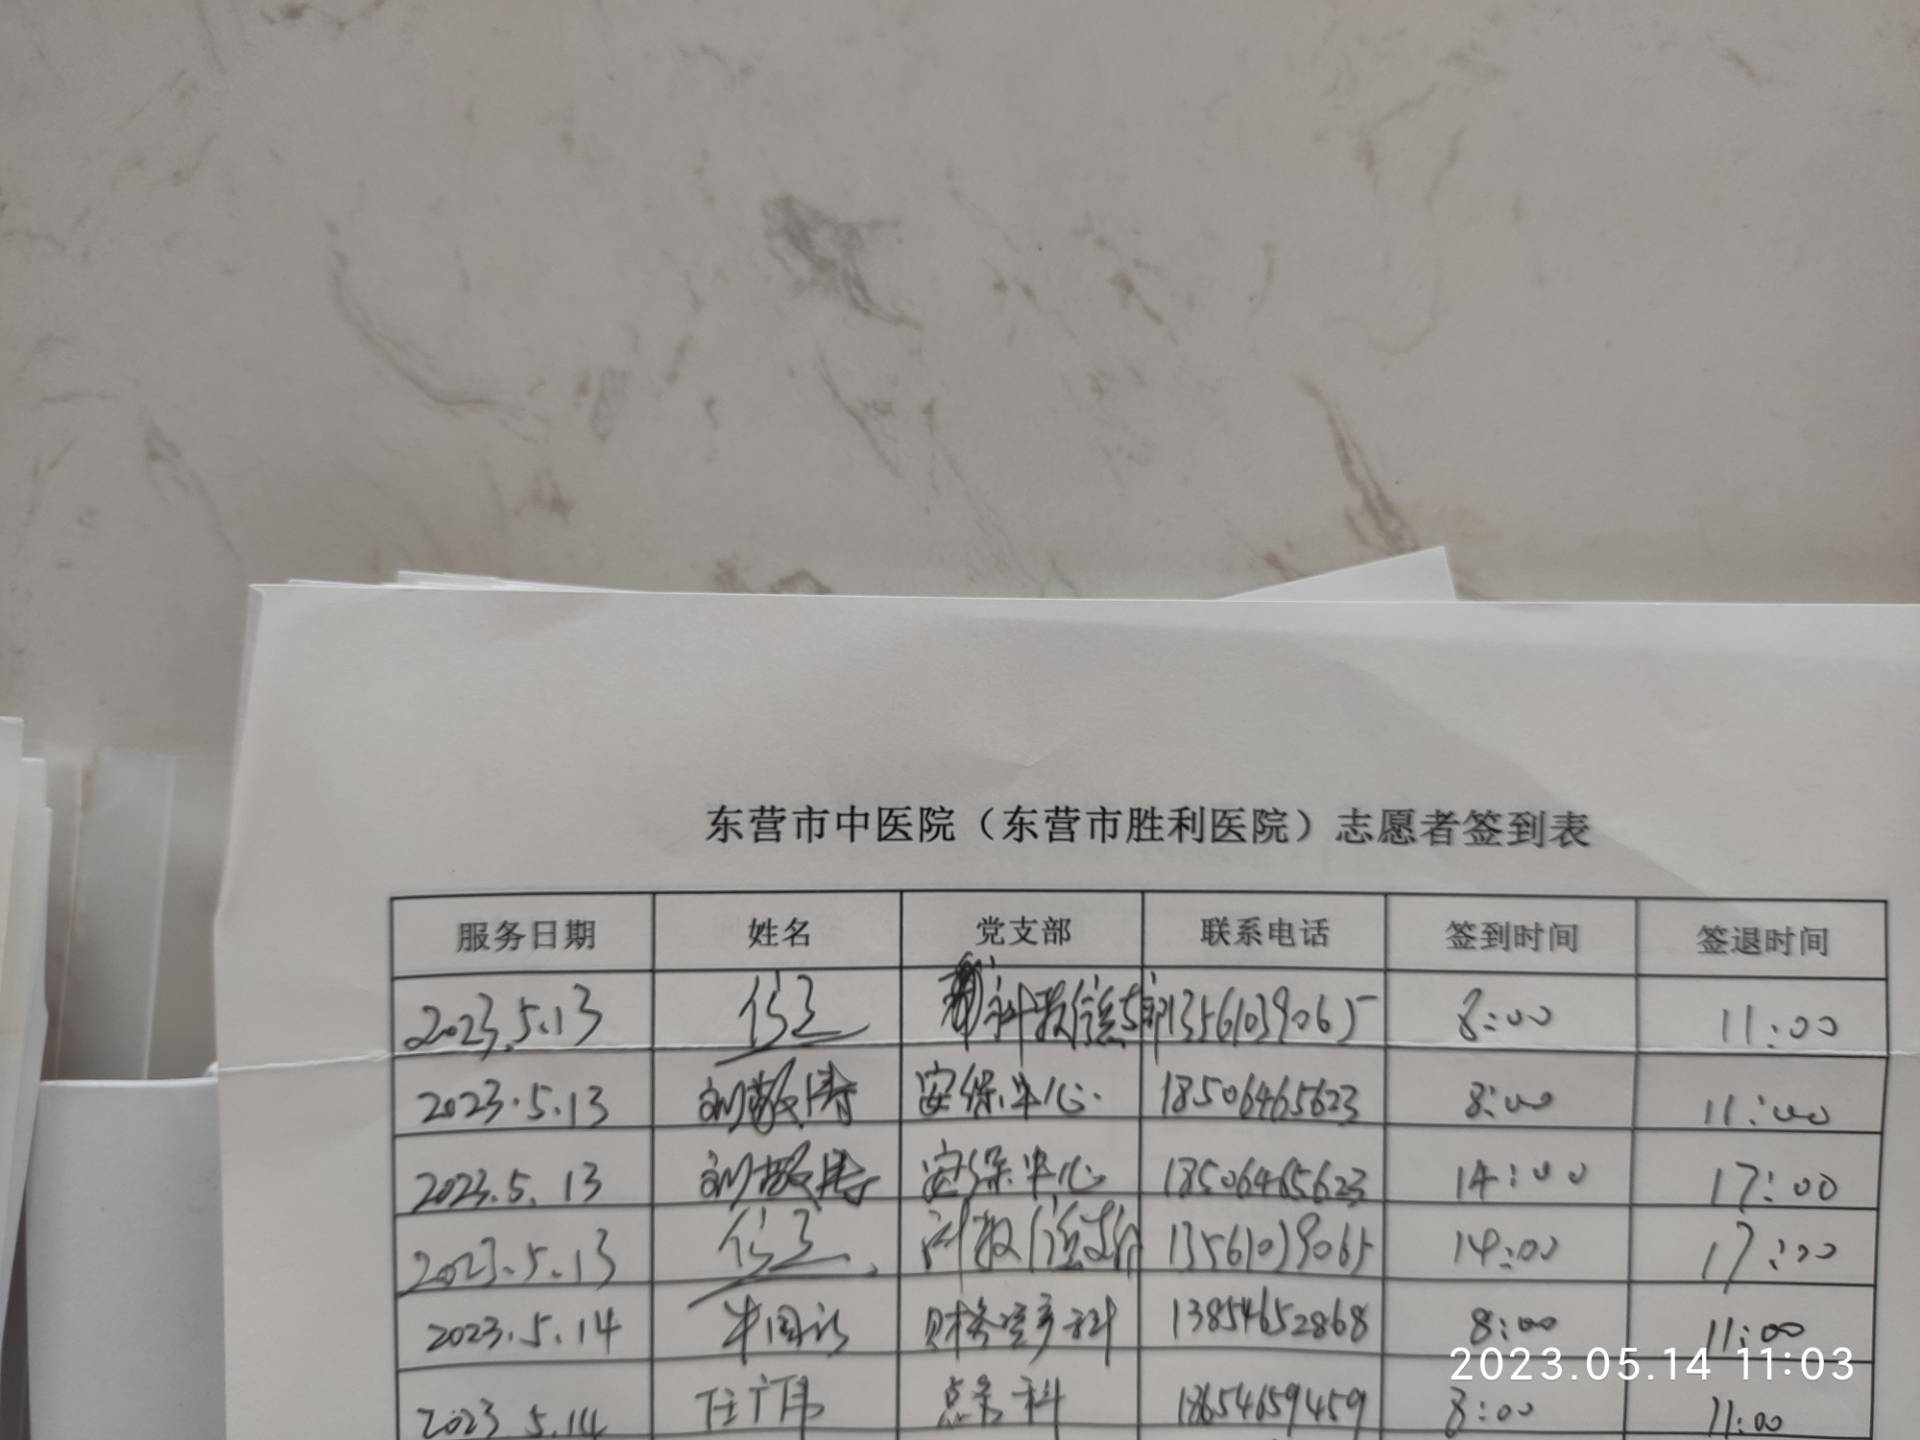 东营市中医院（东营市胜利医院）志愿者签到表
服务日期 姓名 党支部 联系电话 签到时间 签退时间
2023.5.13 科教信息支部 13561039065 8:00 11:00
2023.5.13 刘敬涛 安保中心 18506465623 8:00 11:00
2023.5.13 刘敬涛 安保中心 18506465623 14:00 17:00
2023.5.13 科教信息支部 13561039065 14:00 17:00
2023.5.14 牛国 财务资产科 13854652868 8:00 11:00
2023.5.14 任广伟 科 18654659459 8:00 11:00
2023.05.14 11:03